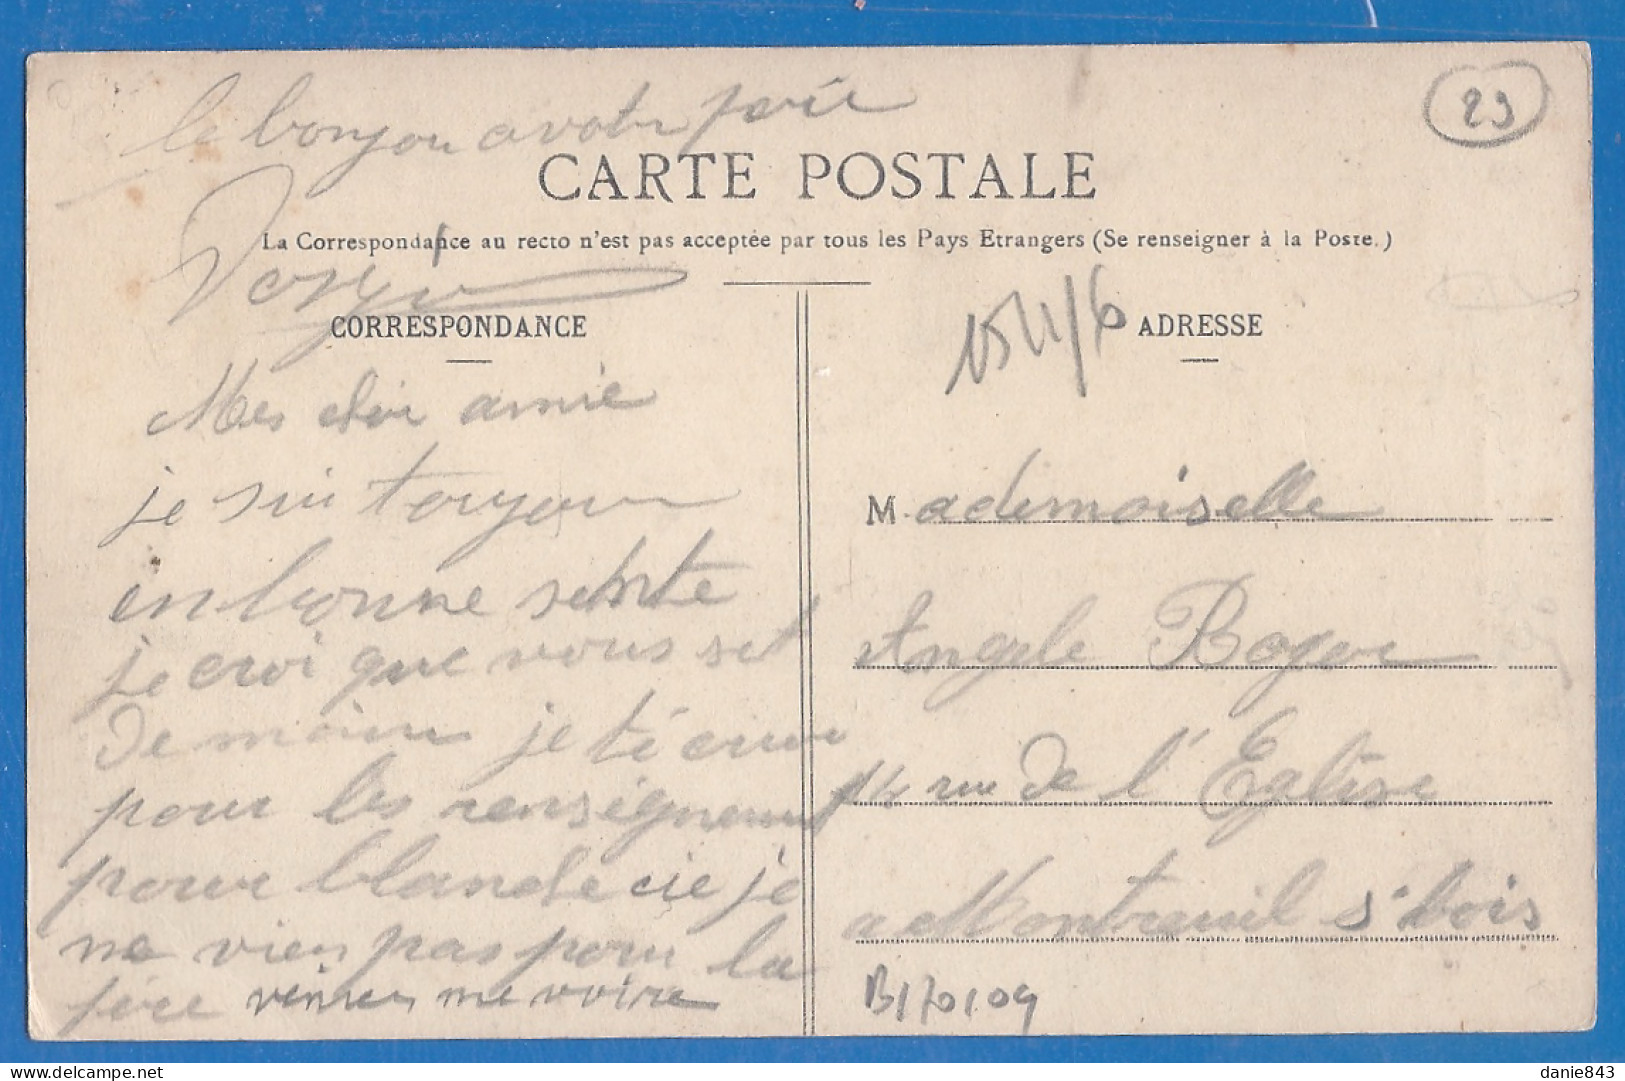 le bonjou a votre
CARTE POSTALE
La Correspondance au recto n'est pas acceptée par tous les Pays Etrangers (Se renseigner à la Poste.)
23
CORRESPONDANCE
ADRESSE
Mes chir amie
je sui toujour
en bonne sente
je croi que vous set
de maim je té crire
pour les renseignement
pour blande cie je
ne vien pas pour la
féve venier me voire
Mademoiselle
Angele
14 rue de l'Eglise
a Montreuil s. bois
B170109
danie843